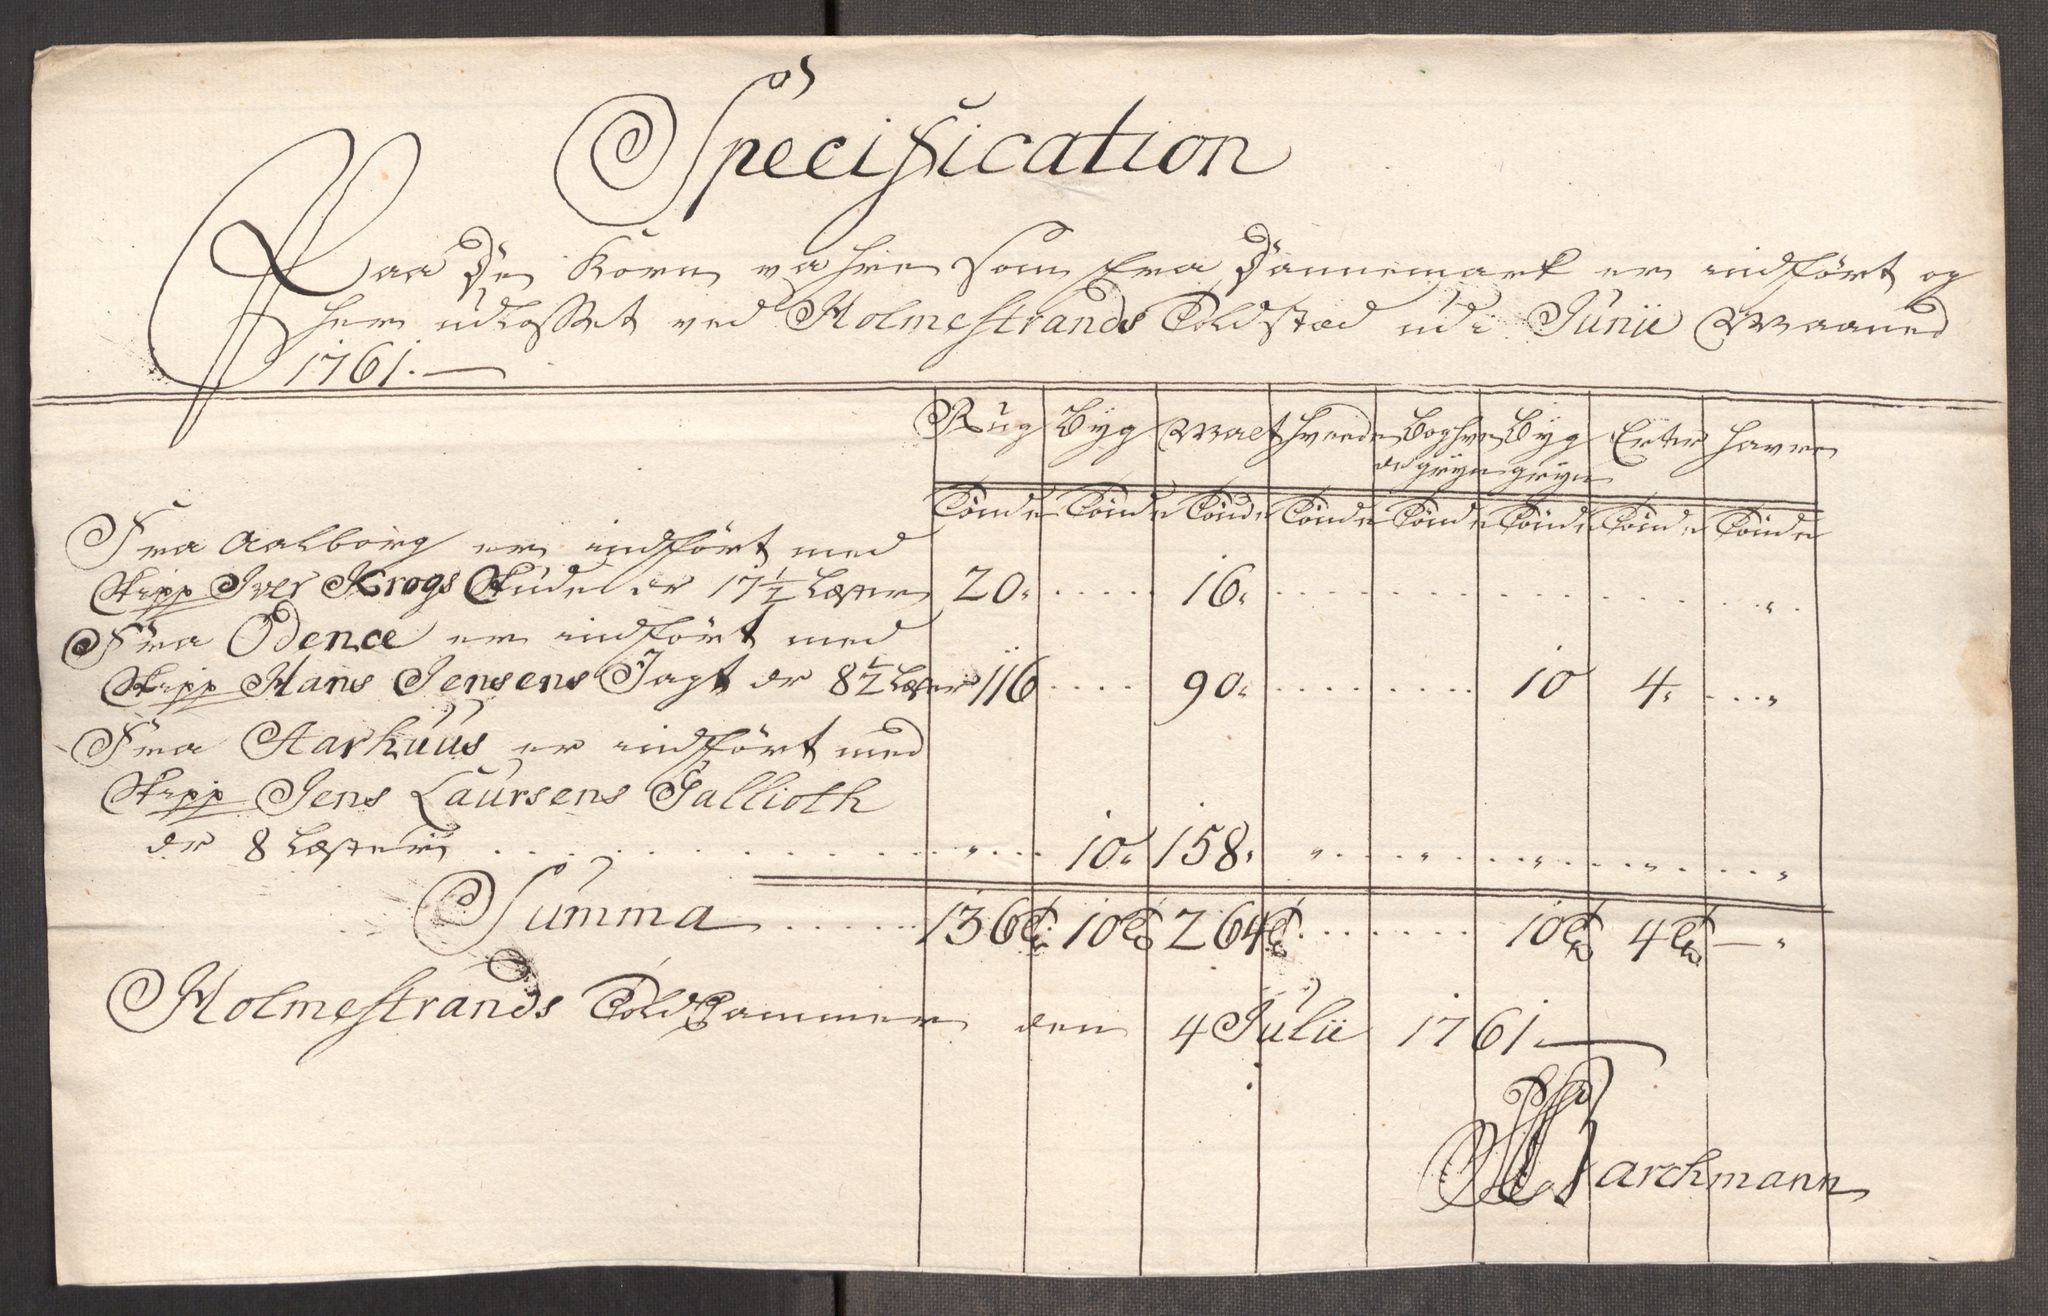 Specification
Paa De Korn vahre som fra Dannemark er indført og
her udlosset ved Holmestrands Toldstæd udi Junii Maaned
1761.—
Rug Byg Malt Hvede Boghve Byg Erter Havre
de gryn gryn
Tønde Tønde Tønde Tønde Tønde Tønde Tønde Tønde
Fra Aalborg er indført med
Skipp Iver Krogs Skude dr 17½ Læster 20. .... 16. ....... „.
Fra Odence er indført med
Skipp Hans Jensens Jagt dr 8½ Læster 116 .... 90. ....... 10 4. ... „
Fra Aarhuus er indført med
Skipp Jens Laursens Gallioth
dr 8 Læster ....... „ ... 10. 158. „ .. „ ... „ .. „ ... „
Summa ..... 136 Tr 10 Tr 264 Tr ...... 10 Tr 4 Tr — „
Holmestrands Toldkammer den 4 Julii 1761.—
Barchmann